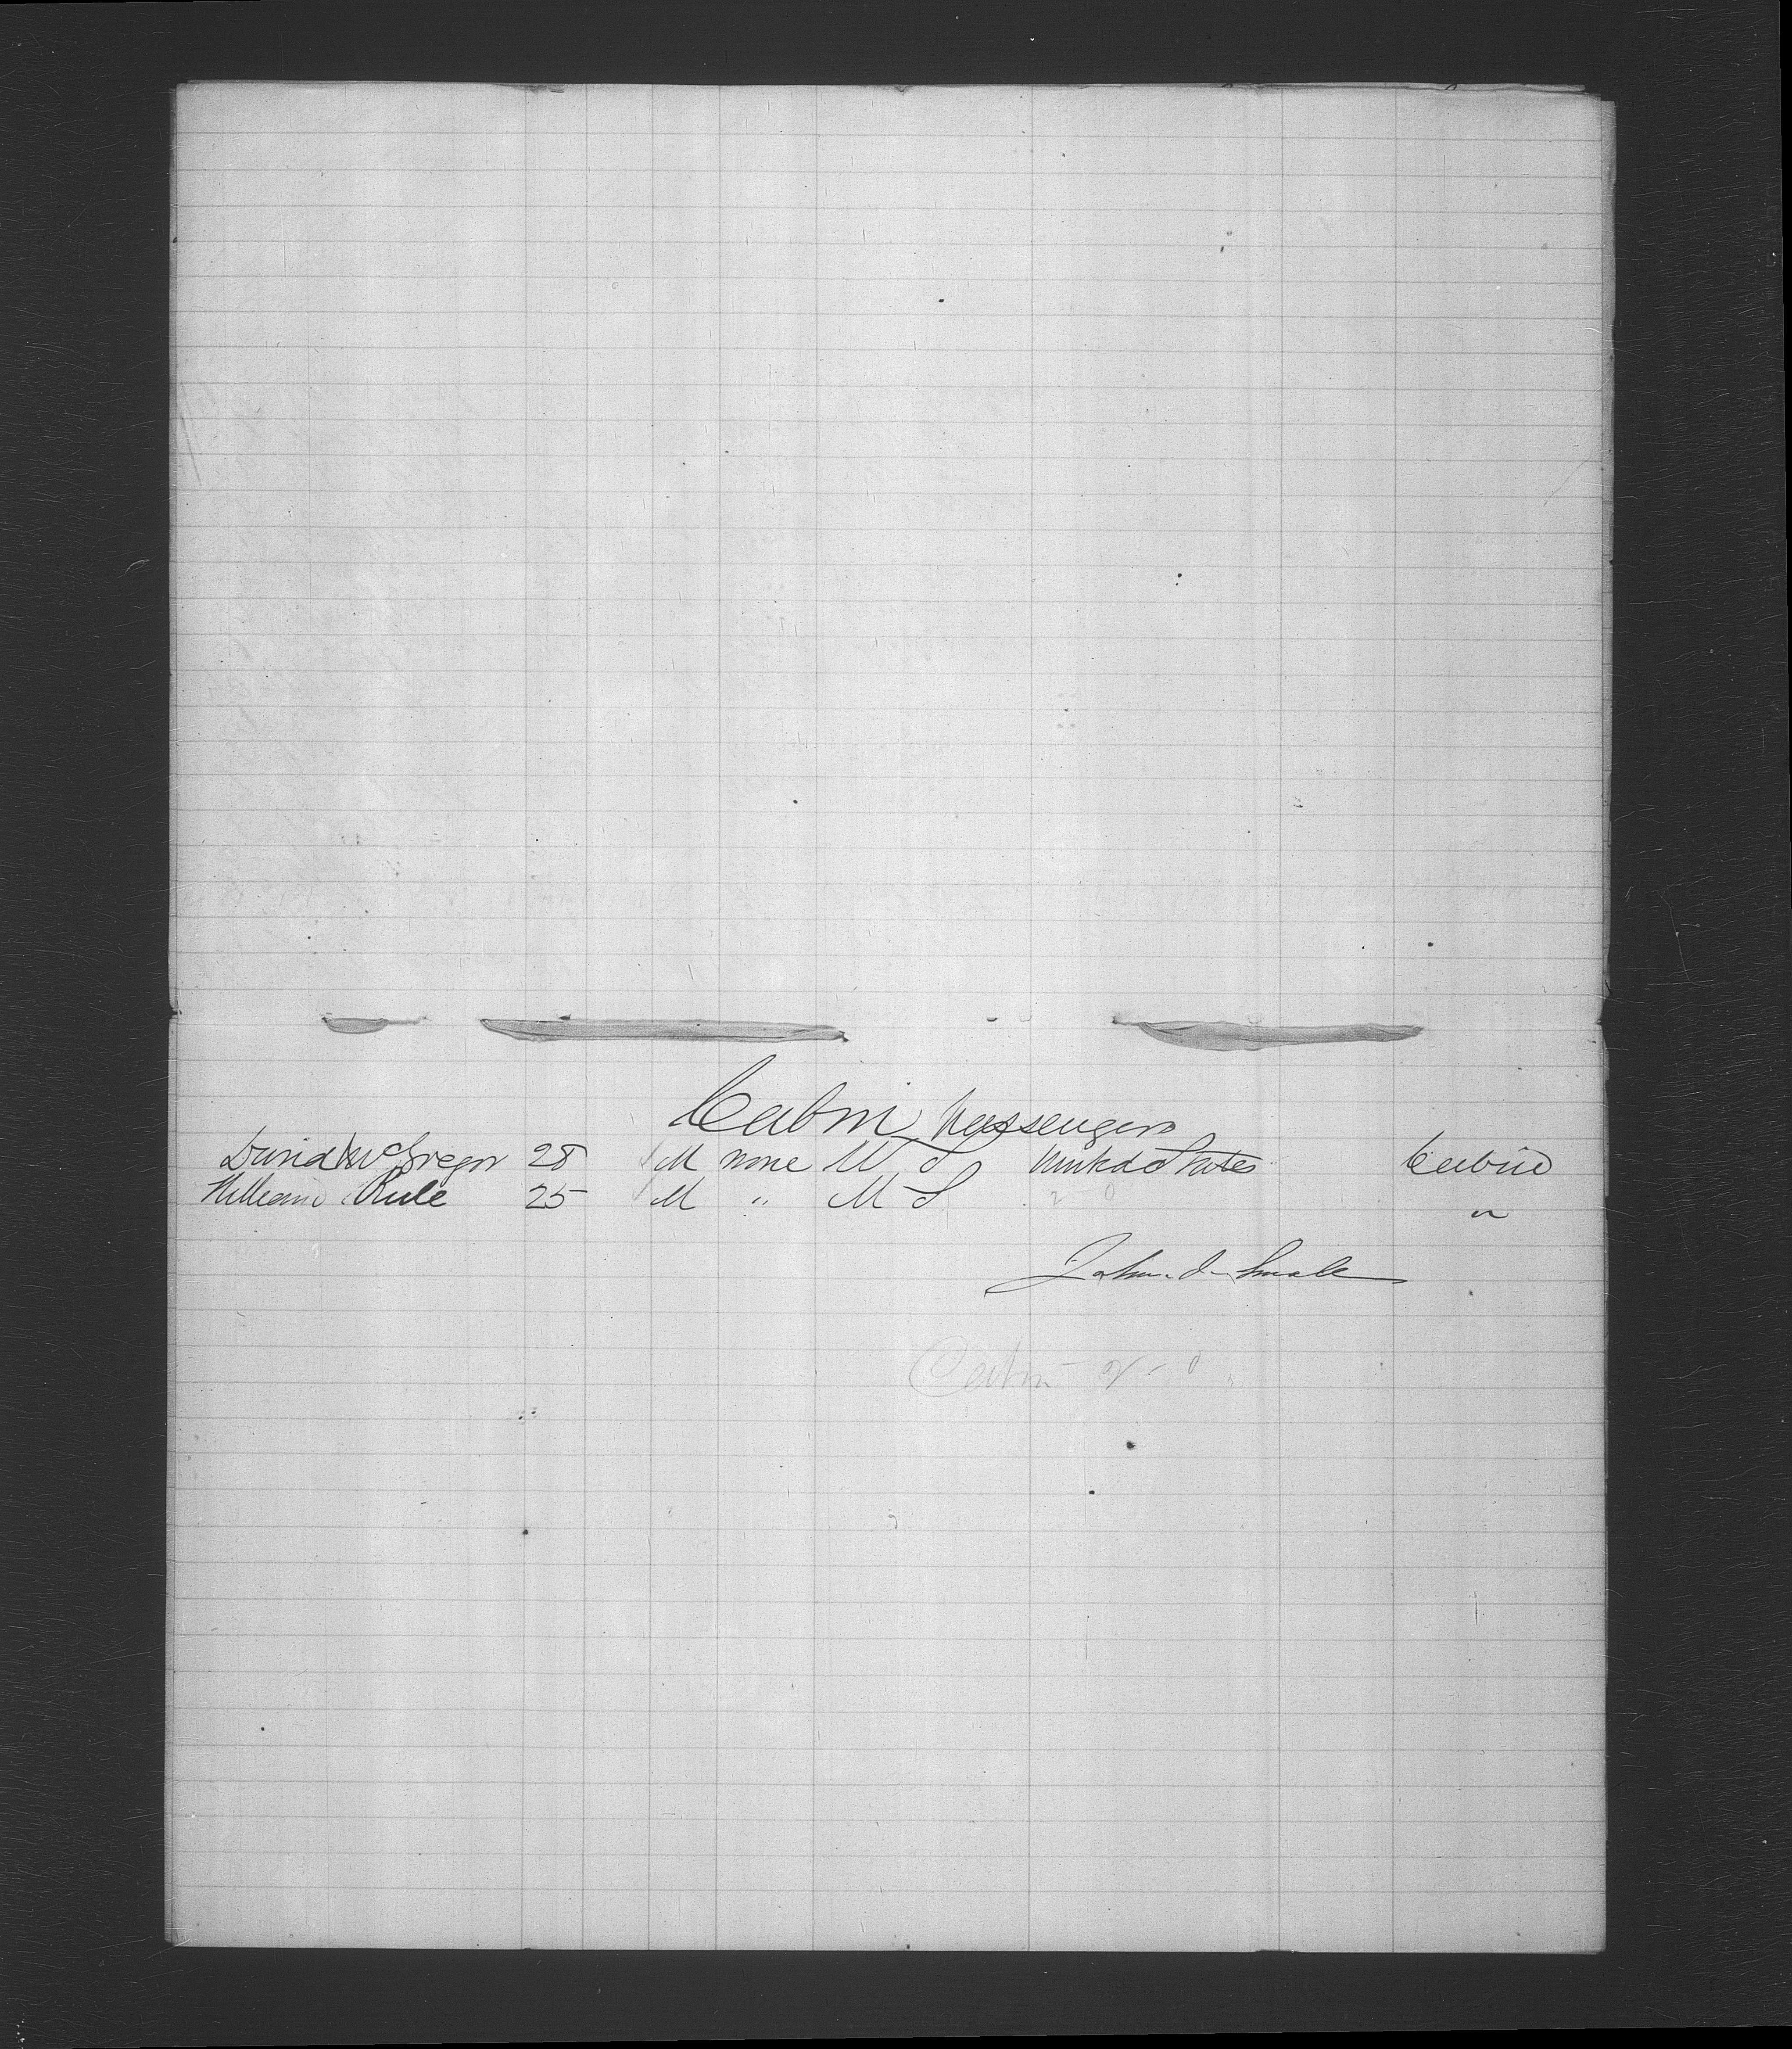 Cabin Passengers
David McGregor 28 M none U S United States Cabin
William Rule 25 M " U S "
John S. Smale
Cabin 2 - 0